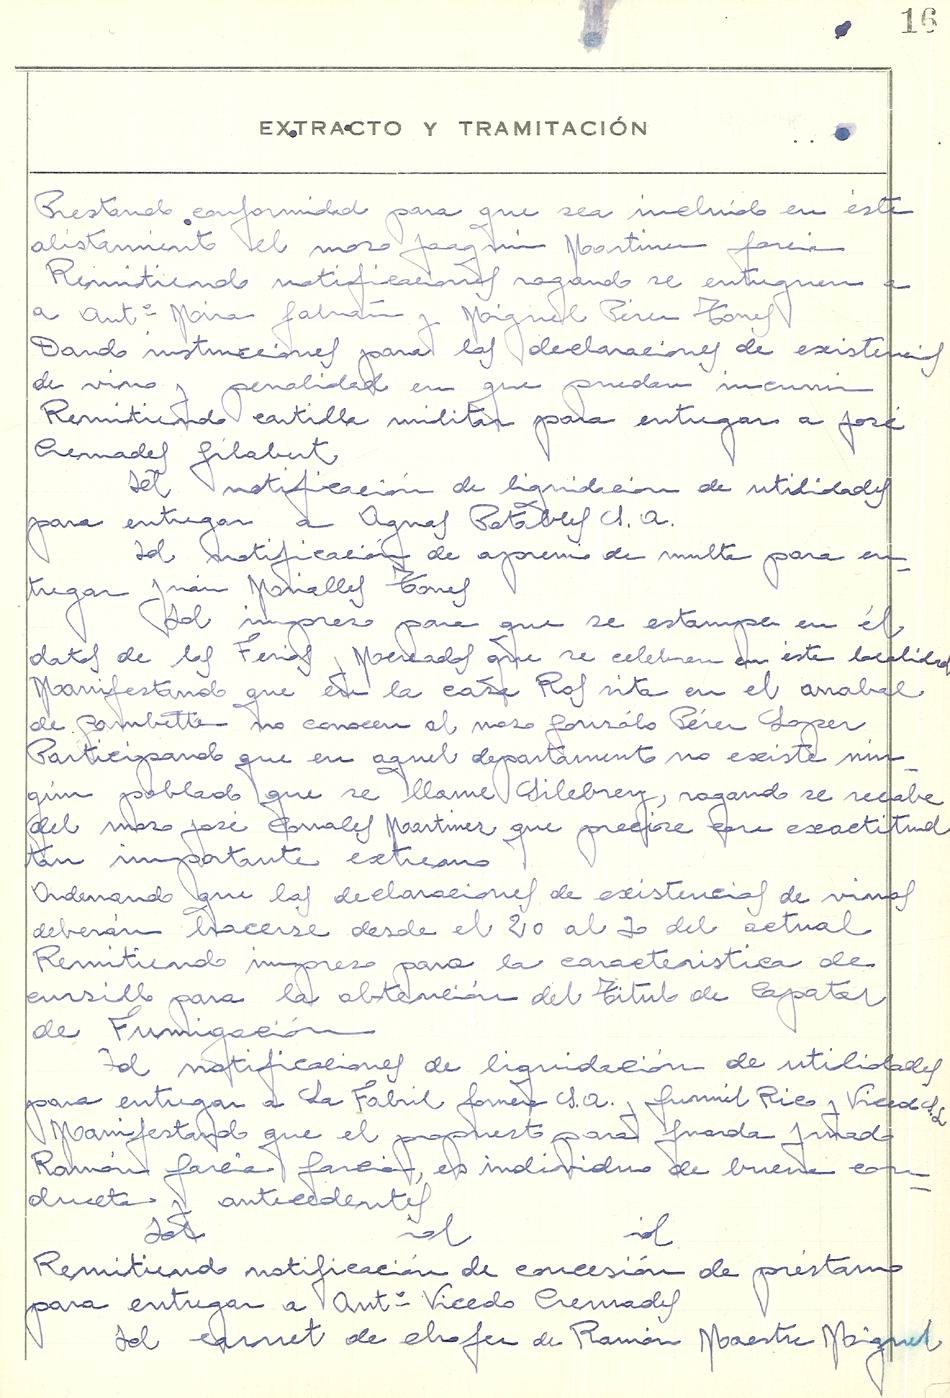 16
EXTRACTO Y TRAMITACIÓN
Prestando conformidad para que sea incluido en éste
alistamiento el mozo Joaquin Martinez Garcia
Remitiendo notificaciones rogando se entreguen a
a Antº Mira Galvañ y Miguel Pérez Torres
Dando instrucciones para las declaraciones de existencias
de vino y penalidad en que puedan incurrir
Remitiendo cartilla militar para entregar a José
Cremades Gilabert
Id notificación de liquidación de utilidades
para entregar a Aguas Potables S.A.
Id notificación de apremio de multa para en-
tregar Juan Miralles Torres
Id impreso para que se estampe en él
datos de las Ferias y Mercados que se celebren en esta localidad
Manifestando que en la casa Ros sita en el arrabal
de no conocen al mozo Gonzálo Pérez Lopez
Participando que en aquel departamento no existe nin-
gún poblado que se llame rogando se recabe
del mozo José Martinez que precise con exactitud
tan importante extremo
Ordenando que las declaraciones de existencias de vinos
deberán hacerse desde el 20 al 30 del actual
Remitiendo impreso para la caracteristica de
cursillo para la obtención del Titulo de Capataz
de Fumigación
Id notificaciones de liquidación de utilidades
para entregar a La Fabril S.A. y Rico y Vicedo S.L
Manifestando que el propuesto para Guarda Jurado
Ramón Garcia Garcia, es individuo de buena con-
ducta y antecedentes
Id id id
Remitiendo notificación de concesión de préstamo
para entregar a Antº Vicedo Cremades
Id carnet de chofer de Ramón Maestre Miguel